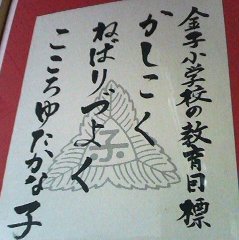 金子小学校の教育目標
かしこく
ねばりづよく
こころゆたかな子
子